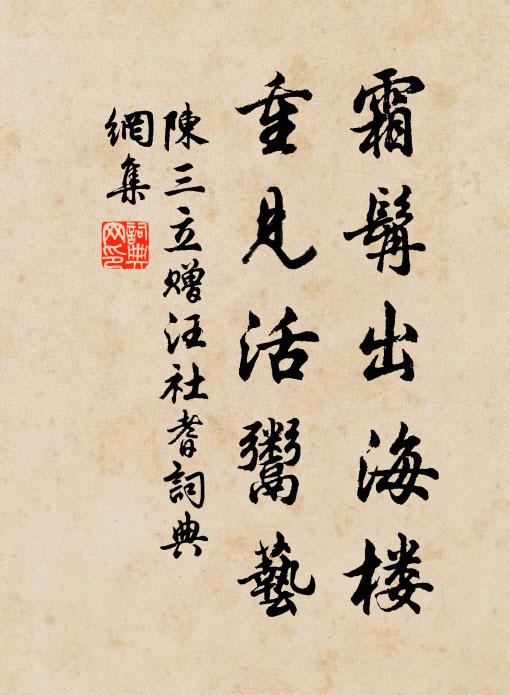 霜髯出海楼
重見活鬻藝
陳三立赠汪社耆詞典
網集
詞典
网印